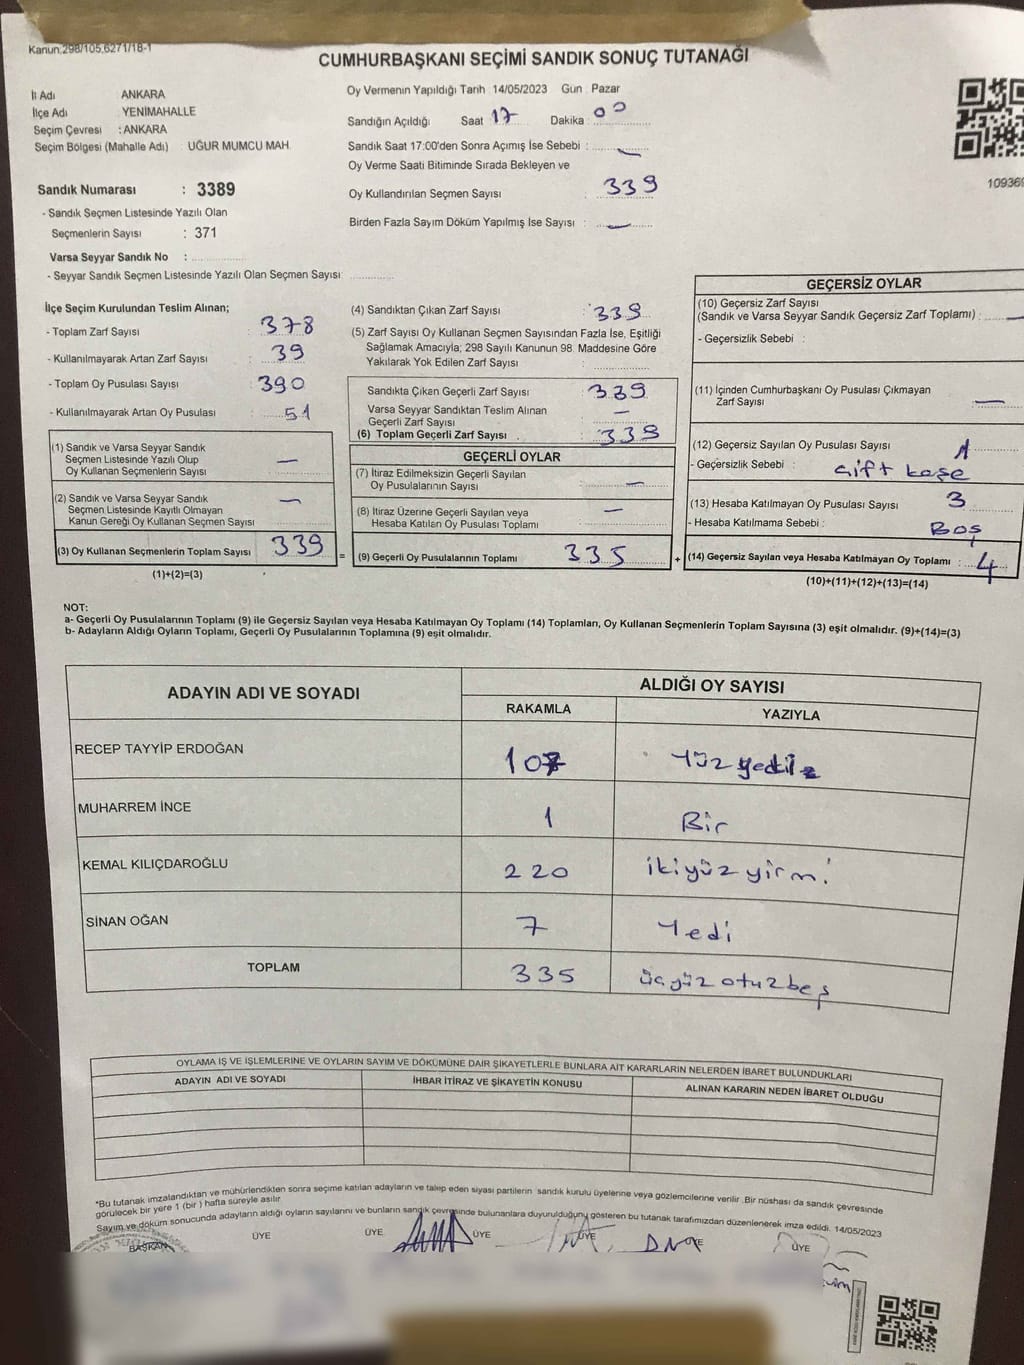 Kanun:298/105,6271/18-1
CUMHURBAŞKANI SEÇİMİ SANDIK SONUÇ TUTANAĞI
İl Adı ANKARA
İlçe Adı YENİMAHALLE
Seçim Çevresi : ANKARA
Seçim Bölgesi (Mahalle Adı) UĞUR MUMCU MAH.
Oy Vermenin Yapıldığı Tarih 14/05/2023 Gün : Pazar
Sandığın Açıldığı Saat 17 Dakika : 00
Sandık Saat 17:00'den Sonra Açımış İse Sebebi : —
Oy Verme Saati Bitiminde Sırada Bekleyen ve
Oy Kullandırılan Seçmen Sayısı : 339
Birden Fazla Sayım Döküm Yapılmış İse Sayısı : —
109369
Sandık Numarası : 3389
- Sandık Seçmen Listesinde Yazılı Olan
Seçmenlerin Sayısı : 371
Varsa Seyyar Sandık No :
- Seyyar Sandık Seçmen Listesinde Yazılı Olan Seçmen Sayısı:
İlçe Seçim Kurulundan Teslim Alınan;
- Toplam Zarf Sayısı : 378
- Kullanılmayarak Artan Zarf Sayısı : 39
- Toplam Oy Pusulası Sayısı : 390
- Kullanılmayarak Artan Oy Pusulası : 51
(1) Sandık ve Varsa Seyyar Sandık
Seçmen Listesinde Yazılı Olup
Oy Kullanan Seçmenlerin Sayısı —
(2) Sandık ve Varsa Seyyar Sandık
Seçmen Listesinde Kayıtlı Olmayan
Kanun Gereği Oy Kullanan Seçmen Sayısı —
(3) Oy Kullanan Seçmenlerin Toplam Sayısı 339
(1)+(2)=(3)
(4) Sandıktan Çıkan Zarf Sayısı : 339
(5) Zarf Sayısı Oy Kullanan Seçmen Sayısından Fazla İse, Eşitliği
Sağlamak Amacıyla; 298 Sayılı Kanunun 98. Maddesine Göre
Yakılarak Yok Edilen Zarf Sayısı :
Sandıkta Çıkan Geçerli Zarf Sayısı : 339
Varsa Seyyar Sandıktan Teslim Alınan
Geçerli Zarf Sayısı : —
(6) Toplam Geçerli Zarf Sayısı : 339
GEÇERLİ OYLAR
(7) İtiraz Edilmeksizin Geçerli Sayılan
Oy Pusulalarının Sayısı : —
(8) İtiraz Üzerine Geçerli Sayılan veya
Hesaba Katılan Oy Pusulası Toplamı : —
= (9) Geçerli Oy Pusulalarının Toplamı 335
GEÇERSİZ OYLAR
(10) Geçersiz Zarf Sayısı
(Sandık ve Varsa Seyyar Sandık Geçersiz Zarf Toplamı) : —
- Geçersizlik Sebebi :
(11) İçinden Cumhurbaşkanı Oy Pusulası Çıkmayan
Zarf Sayısı : —
(12) Geçersiz Sayılan Oy Pusulası Sayısı : 1
- Geçersizlik Sebebi : Çift kaşe
(13) Hesaba Katılmayan Oy Pusulası Sayısı 3
- Hesaba Katılmama Sebebi : Boş
+ (14) Geçersiz Sayılan veya Hesaba Katılmayan Oy Toplamı : 4
(10)+(11)+(12)+(13)=(14)
NOT:
a- Geçerli Oy Pusulalarının Toplamı (9) ile Geçersiz Sayılan veya Hesaba Katılmayan Oy Toplamı (14) Toplamları, Oy Kullanan Seçmenlerin Toplam Sayısına (3) eşit olmalıdır. (9)+(14)=(3)
b- Adayların Aldığı Oyların Toplamı, Geçerli Oy Pusulalarının Toplamına (9) eşit olmalıdır.
ADAYIN ADI VE SOYADI ALDIĞI OY SAYISI
RAKAMLA YAZIYLA
RECEP TAYYİP ERDOĞAN 107 Yüz yedi
MUHARREM İNCE 1 Bir
KEMAL KILIÇDAROĞLU 220 ikiyüz yirmi
SİNAN OĞAN 7 Yedi
TOPLAM 335 üçyüz otuzbeş
OYLAMA İŞ VE İŞLEMLERİNE VE OYLARIN SAYIM VE DÖKÜMÜNE DAİR ŞİKAYETLERLE BUNLARA AİT KARARLARIN NELERDEN İBARET BULUNDUKLARI
ADAYIN ADI VE SOYADI İHBAR İTİRAZ VE ŞİKAYETİN KONUSU ALINAN KARARIN NEDEN İBARET OLDUĞU
*Bu tutanak imzalandıktan ve mühürlendikten sonra seçime katılan adayların ve talep eden siyasi partilerin sandık kurulu üyelerine veya gözlemcilerine verilir. Bir nüshası da sandık çevresinde
görülecek bir yere 1 (bir ) hafta süreyle asılır
Sayım ve döküm sonucunda adayların aldığı oyların sayılarını ve bunların sandık çevresinde bulunanlara duyurulduğunu gösteren bu tutanak tarafımızdan düzenlenerek imza edildi. 14/05/2023
BAŞKAN ÜYE ÜYE ÜYE ÜYE ÜYE ÜYE